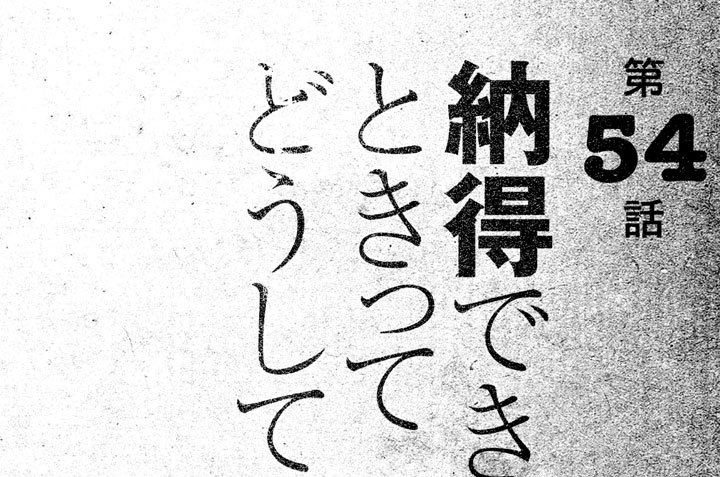 第54話
納得でき
ときって
どうして